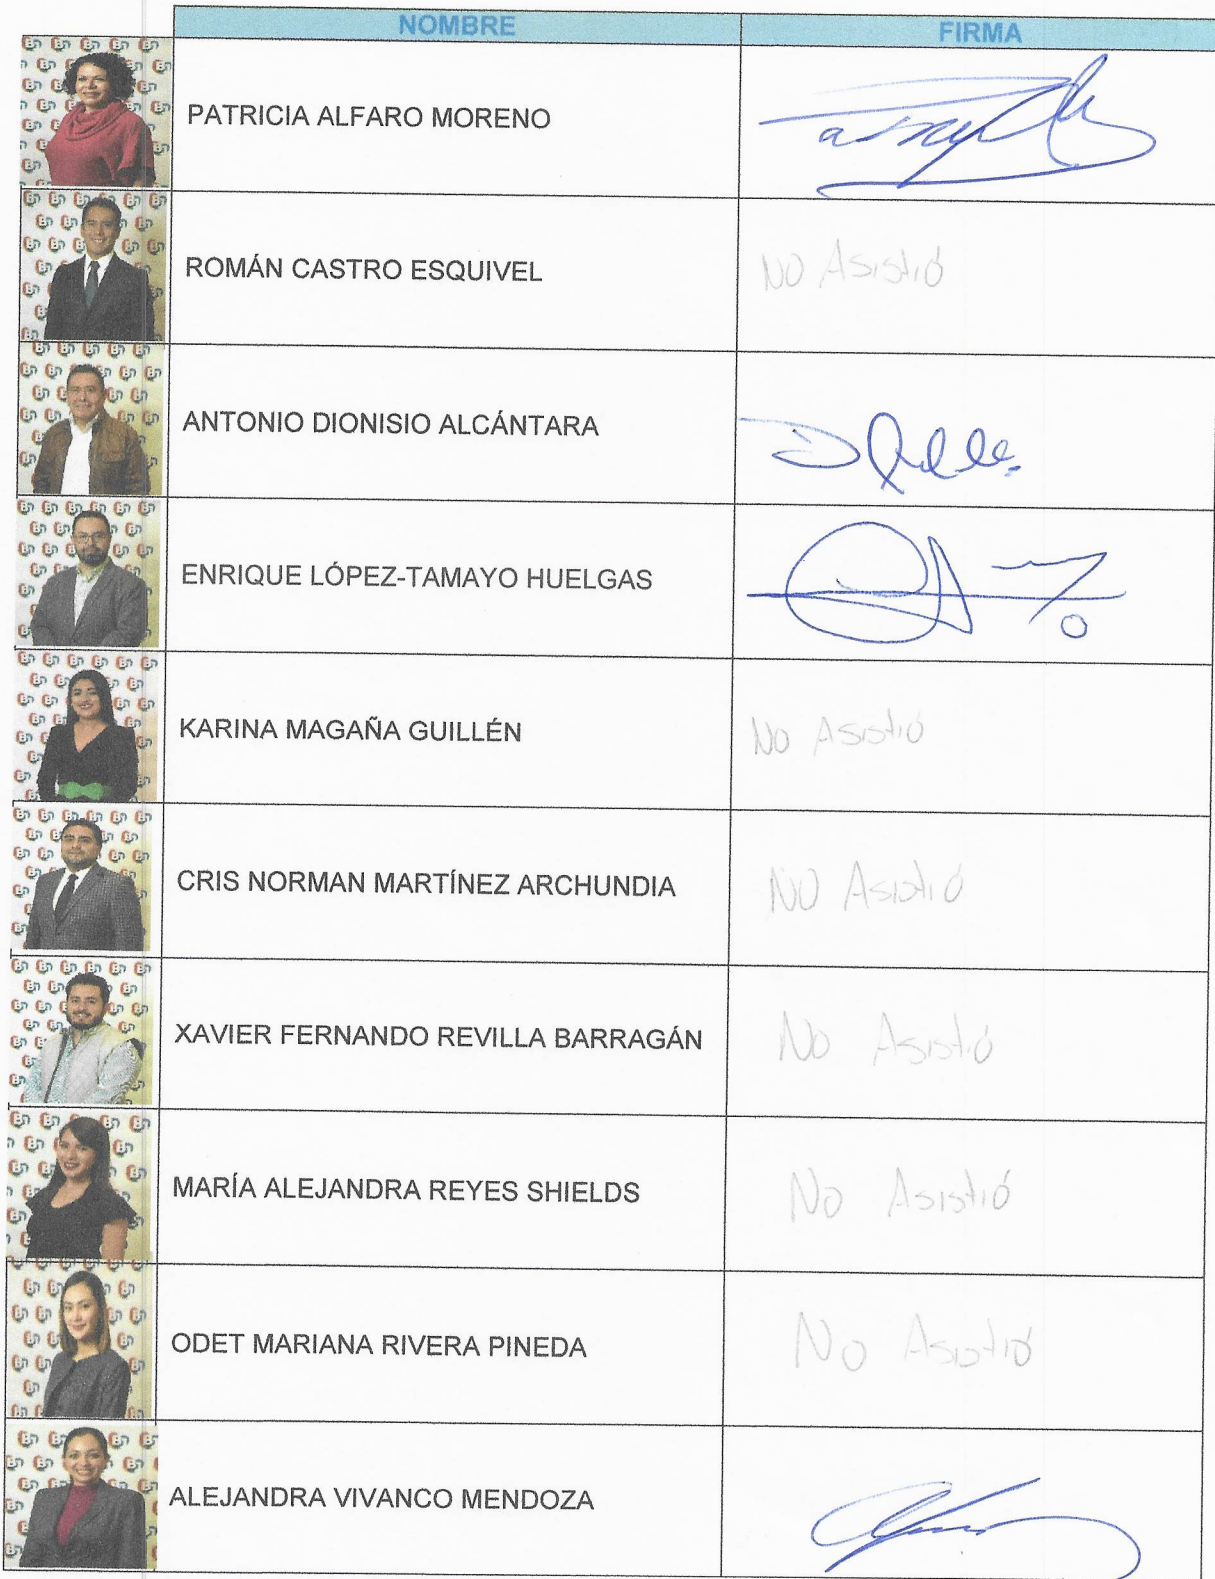 NOMBRE FIRMA
PATRICIA ALFARO MORENO
ROMÁN CASTRO ESQUIVEL No Asistió
ANTONIO DIONISIO ALCÁNTARA
ENRIQUE LÓPEZ-TAMAYO HUELGAS
KARINA MAGAÑA GUILLÉN No Asistió
CRIS NORMAN MARTÍNEZ ARCHUNDIA No Asistió
XAVIER FERNANDO REVILLA BARRAGÁN No Asistió
MARÍA ALEJANDRA REYES SHIELDS No Asistió
ODET MARIANA RIVERA PINEDA No Asistió
ALEJANDRA VIVANCO MENDOZA